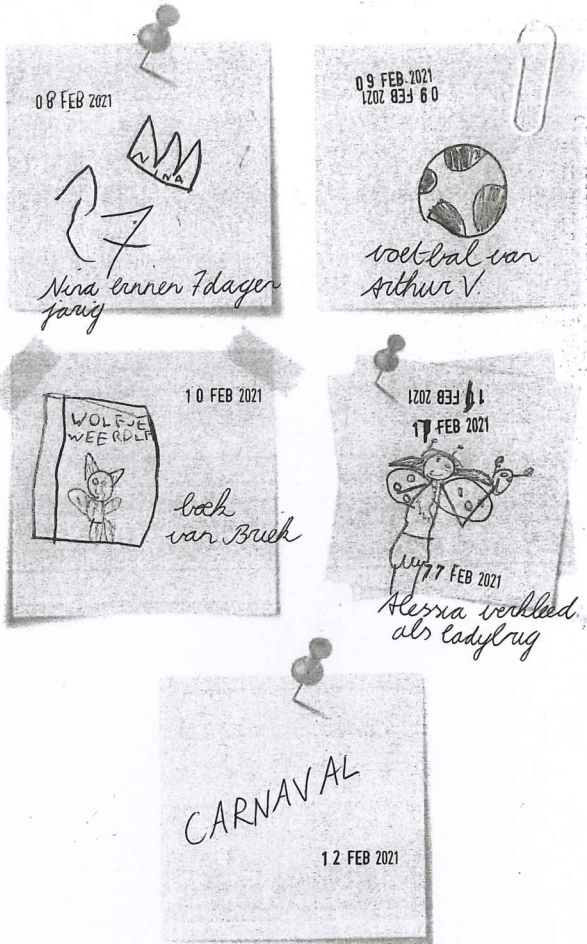 08 FEB 2021
NINA
7
Nina binnen 7 dagen
jarig
09 FEB. 2021
09 FEB 2021
voetbal van
Arthur V.
10 FEB 2021
WOLFJE
WEEROLF
boek
van Briek
11 FEB 2021
11 FEB 2021
11 FEB 2021
Alessia verkleed
als ladybug
CARNAVAL
12 FEB 2021